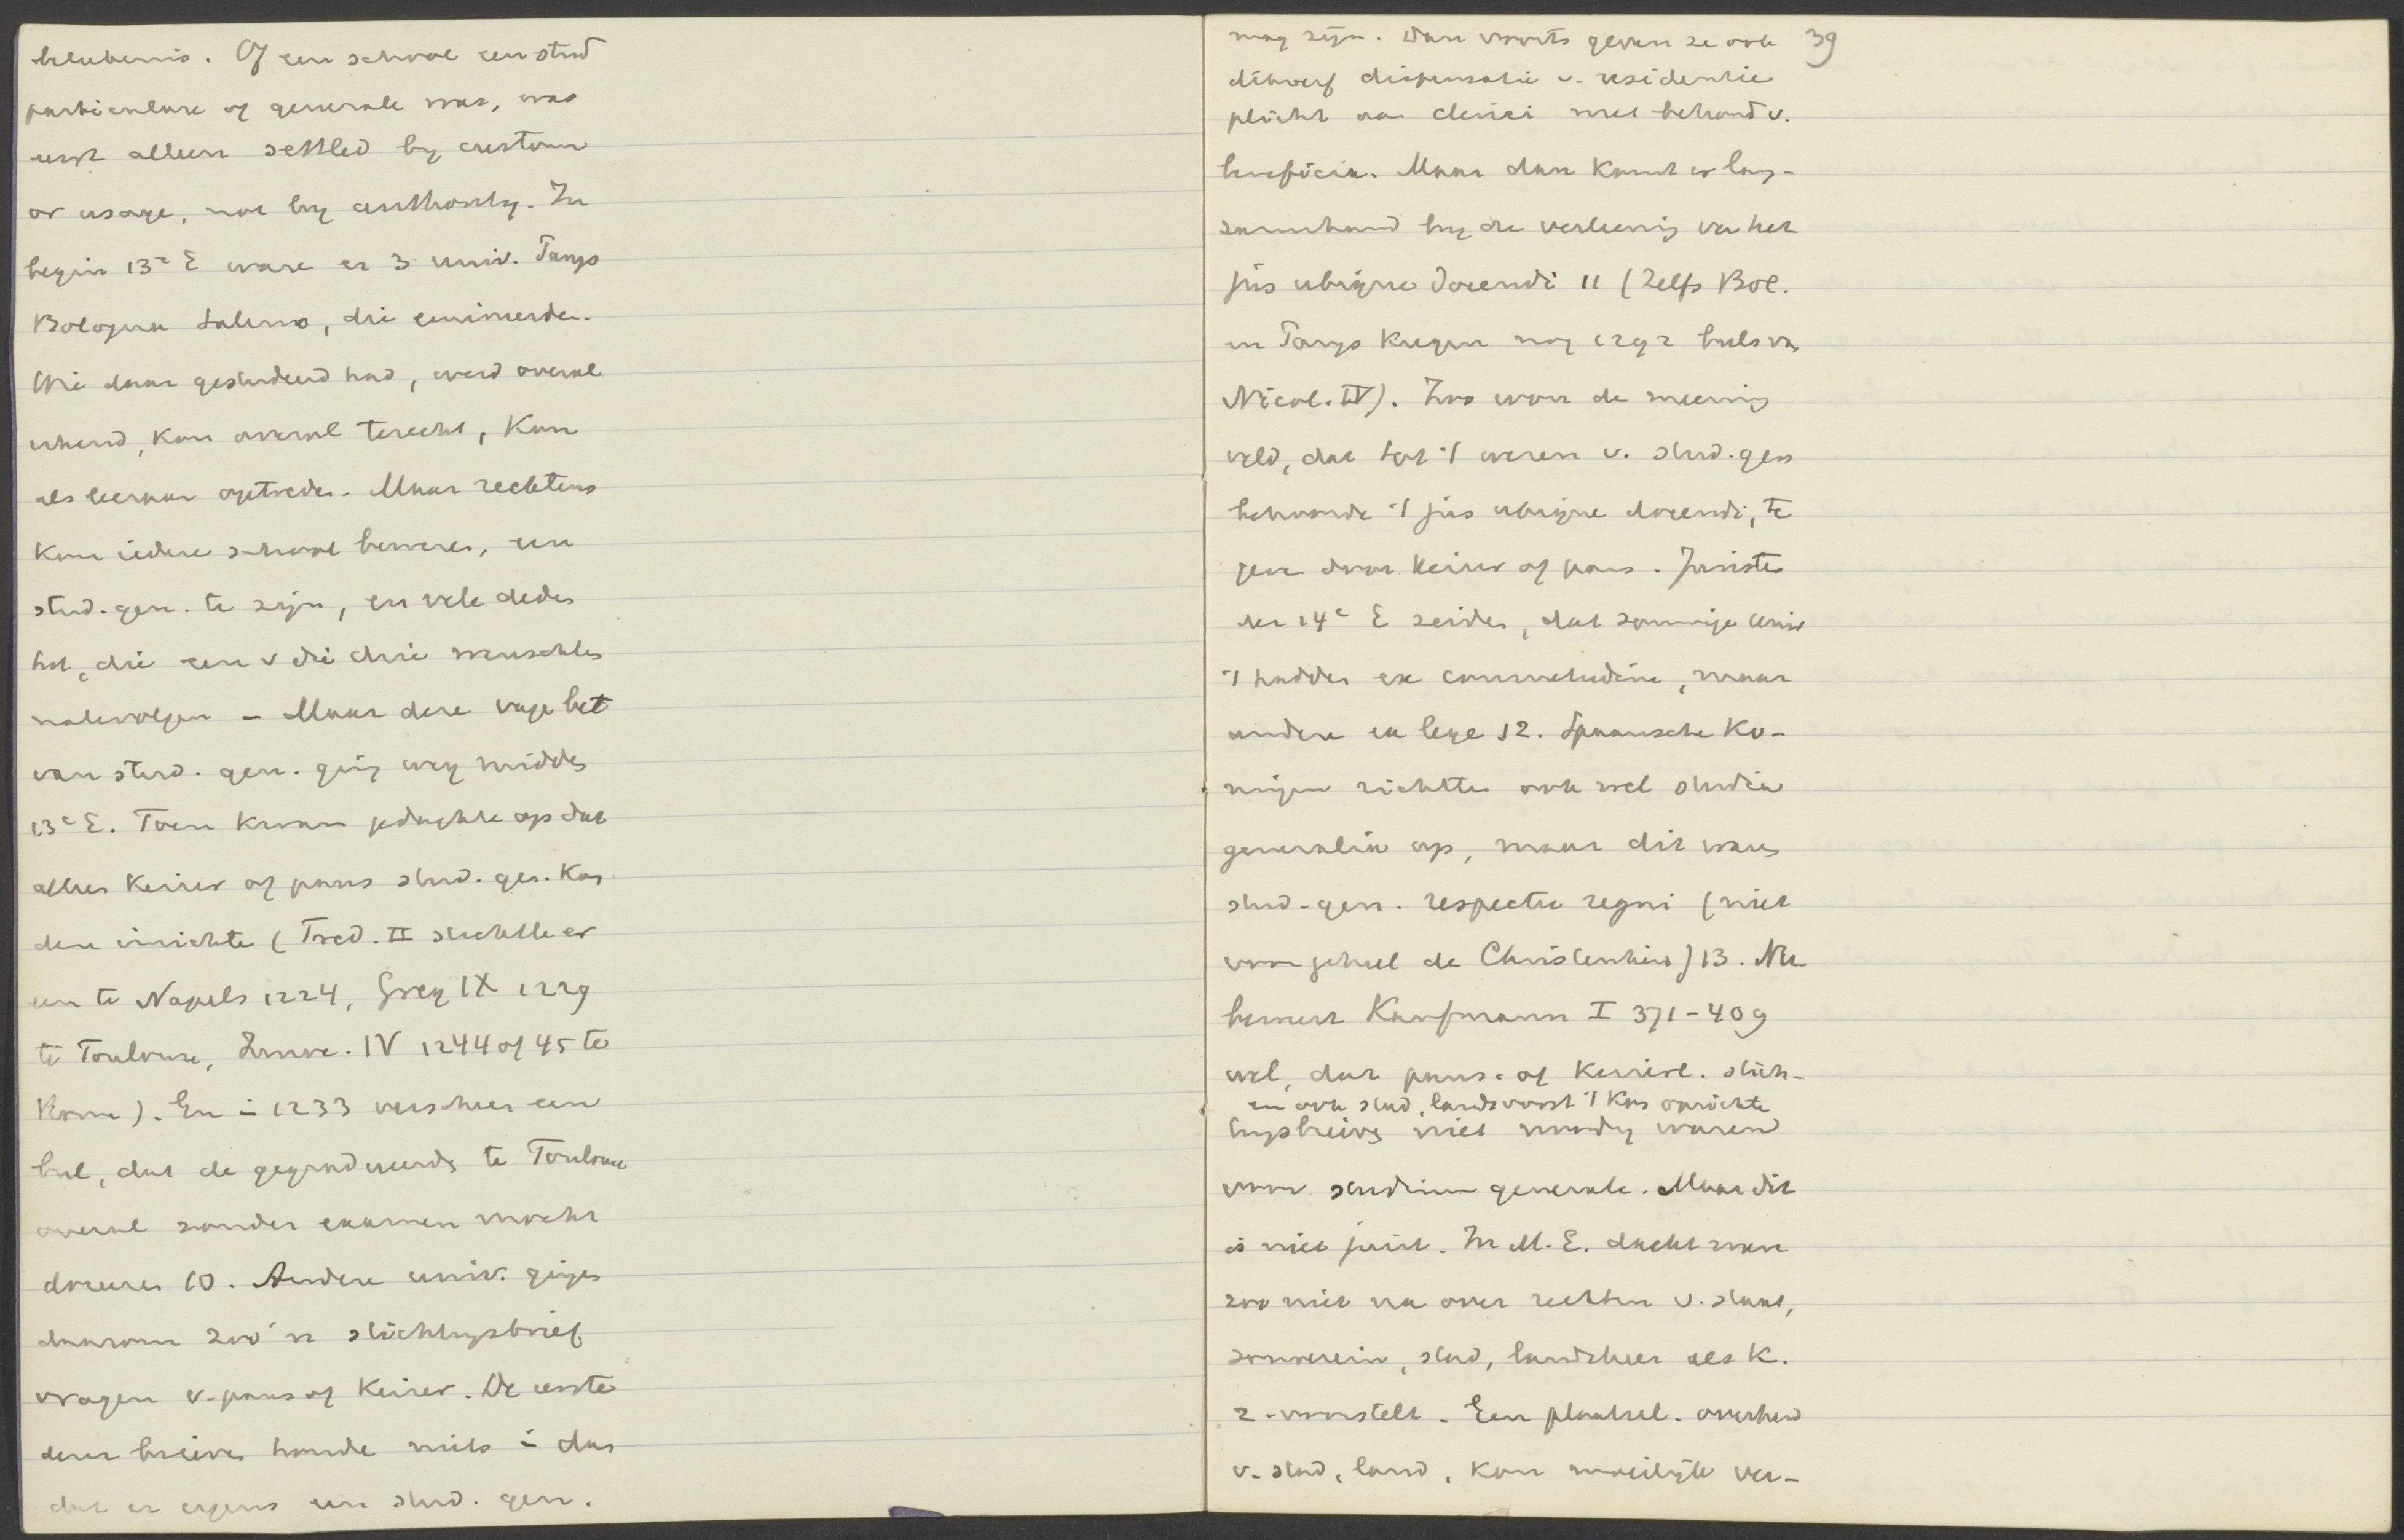 beteekenis. Of een school een stud
particulare of generale was, was
eerst alleen settled by custom
or usage, not by authority. In
begin 13e E ware er 3 univ. Parijs
Bologna Salerno, die
Wie daar gestudeerd had, werd overal
erkend, kon overal terecht, kon
als leeraar optreden. Maar rechtens
kon iedere school beweren, een
stud. gen. te zijn, en vele deden
het, die een v die drie wenschten
natevolgen – Maar deze vage bet
van stud. gen. ging weg midden
13e E. Toen kwam gedachte op dat
alleen Keizer of paus stud. gen. kon
den inrichten (Fred. II stichtte er
een te Napels 1224, Greg IX 1229
te Toulouse, Innoc. IV 1244 of 45 te
Rome). En in 1233 verscheen een
bul, dat de gegradueerde te Toulouse
overal zonder examen mocht
doceeren 10. Andere univ. gingen
daarom zoo'n stichtingsbrief
vragen v. paus of Keizer. De eerste
dezer brieven houde niets in dan
dat er ergens een stud. gen.
39
mag zijn. Dan voorts geven ze ook
dikwerf dispensatie v. residentie
plicht aan clerici met behoud v.
beneficia. Maar dan komt er lang-
zamerhand bij de verleening van het
jus ubique docendi 11 (Zelfs Bol.
en Parijs kregen nog 1292 buls van
Nicol. IV). Zoo won de meening
veld, dat tot 't wezen v. stud. gen
behoorde 't jus ubique docendi, te
geven door Keizer of paus. Juristen
der 14e E zeiden, dat sommige Univ
't hadden ex consuetudine, maar
andere ex lege 12. Spaansche Ko-
ningen richtten ook wel studia
generalia op, maar dit waren
stud. gen. respectu regni (niet
voor geheel de Christenheid) 13. Nu
beweert Kaufmann I 371-409
wel, dat pausel. of Keizerl. stich-
en ook stad, landsvorst 't kon oprichten
tingsbrieven niet noodig waren
voor studium generale. Maar dit
is niet juist. In M.E. dacht men
zoo niet na over rechten v. staat,
souverein, stad, landsheer als K.
z. voorstelt. Een plaatsel. overheid
v. stad, land, kon moeilijk ver-